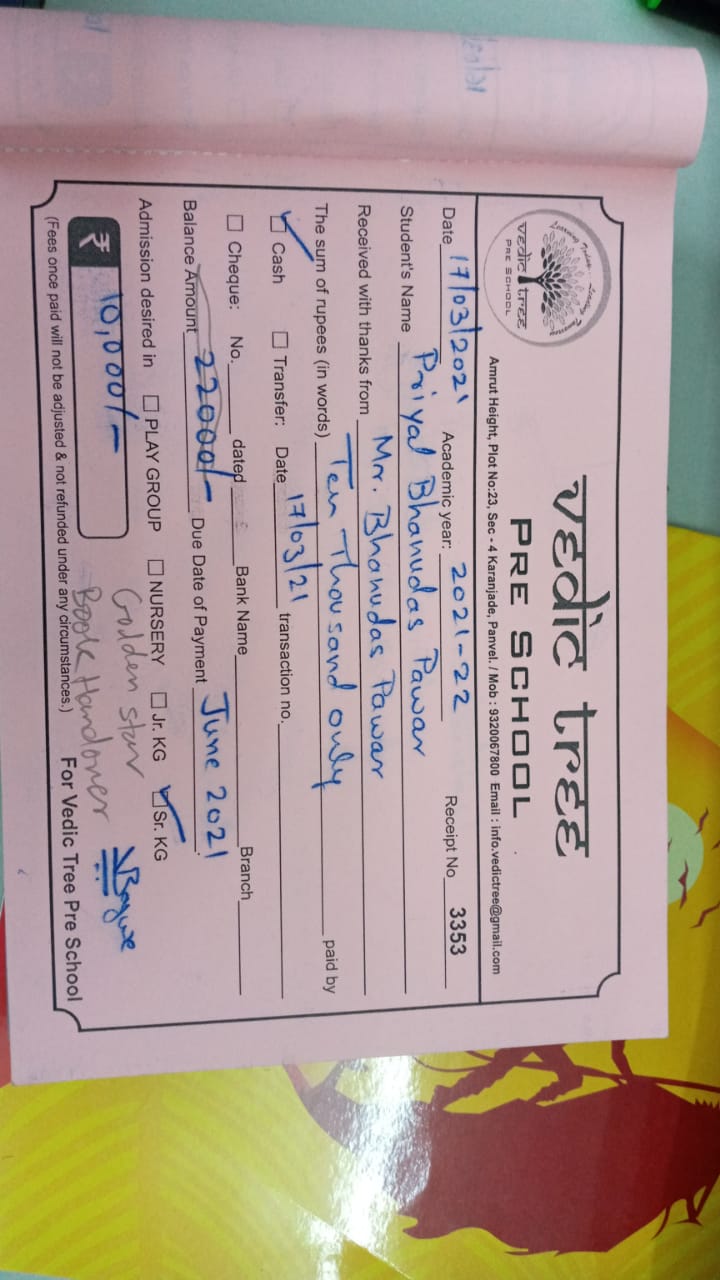 vedic tree
PRE SCHOOL
Learning Today...Leading Tomorrow
vedic tree
PRE SCHOOL
Amrut Height, Plot No:23, Sec - 4 Karanjade, Panvel. / Mob : 9320067800 Email : info.vedictree@gmail.com
Date 17/03/2021 Academic year: 2021-22 Receipt No 3353
Student's Name Priyal Bhanudas Pawar
Received with thanks from Mr. Bhanudas Pawar
The sum of rupees (in words) Ten Thousand only paid by
Cash Transfer: Date 17/03/21 transaction no.
Cheque: No. dated Bank Name Branch
Balance Amount 22000/- Due Date of Payment June 2021
Admission desired in PLAY GROUP NURSERY Jr. KG Sr. KG
Golden star
₹ 10,000/- Book Handover
(Fees once paid will not be adjusted & not refunded under any circumstances.) For Vedic Tree Pre School